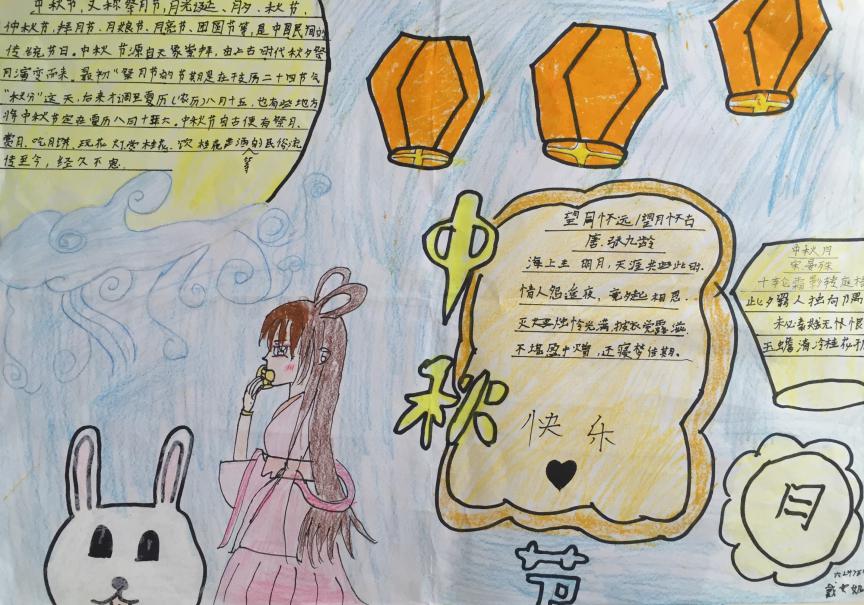 中秋节,又称祭月节,月光诞、月夕、秋节、
仲秋节,拜月节、月娘节、月亮节、团圆节等,是中国民间的
传统节日。中秋节源自天象崇拜,由上古时代秋夕祭
月演变而来。最初"祭月节"的节期是在干支历二十四节气
"秋分"这天,后来才调至夏历(农历)八月十五,也有些地方
将中秋节定在夏历八月十六。中秋节自古便有祭月、
赏月、吃月饼、玩花灯、赏桂花、饮桂花酒等的民俗流
传至今,经久不息。
中
秋
节
望月怀远/望月怀古
唐.张九龄
海上生明月,天涯共此时.
情人怨遥夜,竟夕起相思..
灭烛怜光满,披衣觉露滋.
不堪盈手赠,还寝梦佳期。
快乐
中秋月
宋晏殊
十轮霜影转庭梧
此夕羁人独向隅
未必素娥无怅恨
玉蟾清冷桂花孤
月